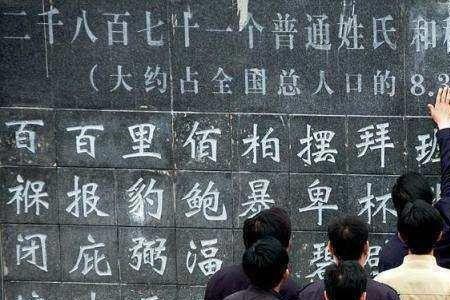 二千八百七十一个普通姓氏和
（大约占全国总人口的 8.3
百 百 里 佰 柏 摆 拜 班
褓 报 豹 鲍 暴 卑 杯
闭 庇 弼 湢 碧